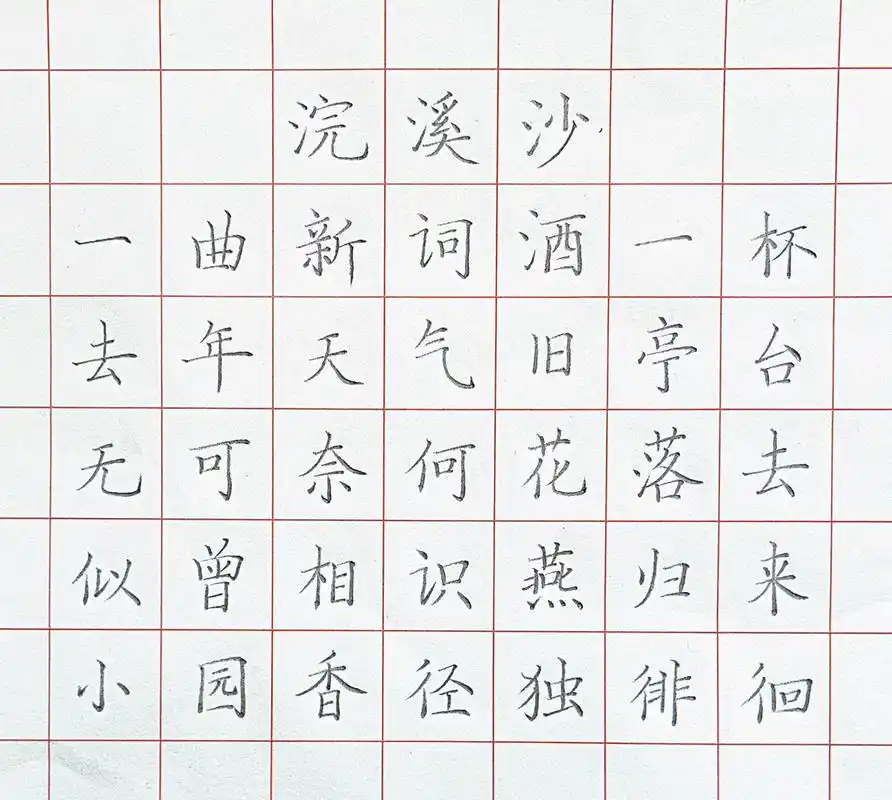 浣溪沙
一曲新词酒一杯
去年天气旧亭台
无可奈何花落去
似曾相识燕归来
小园香径独徘徊